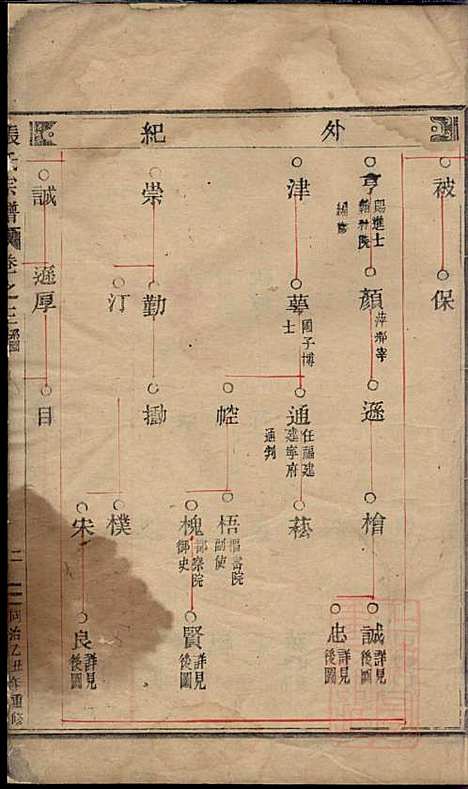 外紀
被
保
亨 賜進士
翰林院
編修
顏 萍鄉宰
遜
檜
誠 詳見
後圖
忠 詳見
後圖
津
萼 國子博
士
通 任福建
建寧府
通判
藝
崆
梧
副使
槐 都察院
御史
賢 詳見
後圖
崇
勤
汀
勱
樸
宋
良 詳見
後圖
張氏宗譜
卷之
二
同治乙丑年重修
誠
遜厚
目